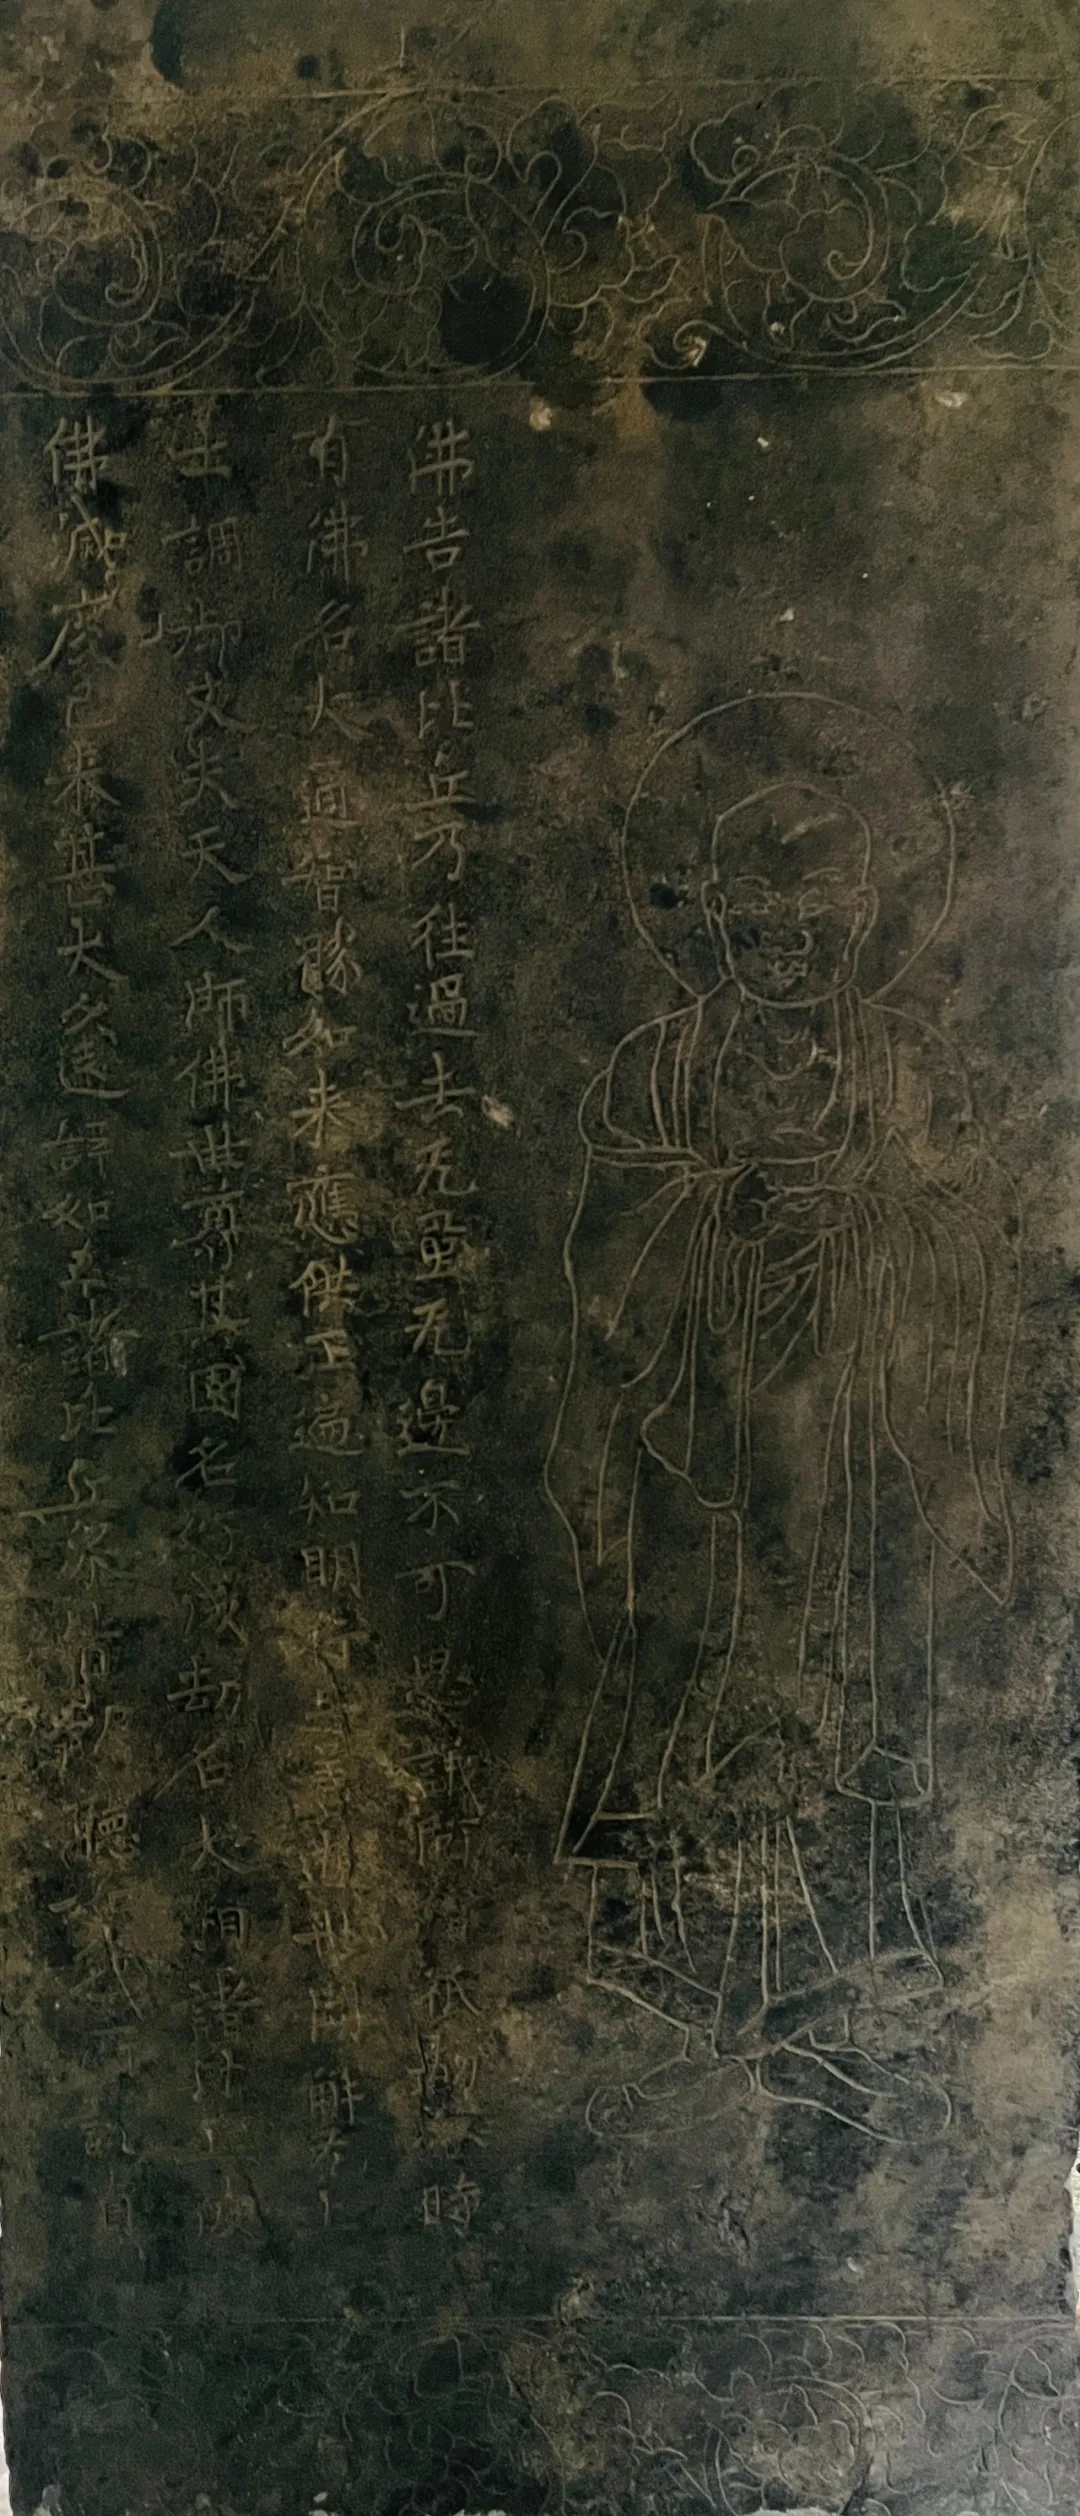 佛告諸比丘乃往過去无量无邊不可思議阿僧祇劫時
有佛名大通智勝如来應供正遍知明行足善逝世間解无上
士調御丈夫天人師佛世尊其國名好成劫名大相諸比丘彼
佛滅度已来甚大久遠譬如諸比丘衆皆聽